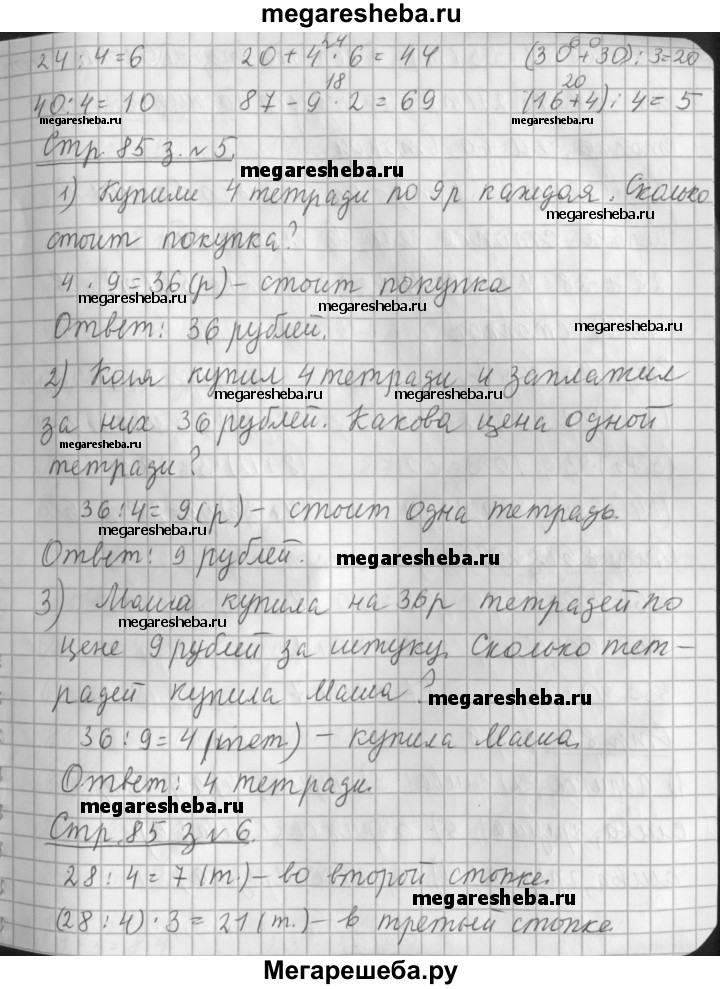 megaresheba.ru
24 : 4 = 6   20 + 4 · 6 = 44   (30 + 30) : 3 = 20
24   60
40 : 4 = 10   87 - 9 · 2 = 69   (16 + 4) : 4 = 5
18   20
megaresheba.ru   megaresheba.ru
Стр 85 з. №5.
megaresheba.ru
1) Купили 4 тетради по 9р каждая. Сколько
megaresheba.ru
стоит покупка?
4 · 9 = 36 (р) – стоит покупка
megaresheba.ru   megaresheba.ru
Ответ: 36 рублей.
megaresheba.ru
2) Коля купил 4 тетради и заплатил
megaresheba.ru   megaresheba.ru
за них 36 рублей. Какова цена одной
megaresheba.ru
тетради?
36 : 4 = 9 (р) – стоит одна тетрадь.
megaresheba.ru
Ответ: 9 рублей.
megaresheba.ru
3) Маша купила на 36р тетрадей по
megaresheba.ru
цене 9 рублей за штуку. Сколько тет-
радей купила Маша?
megaresheba.ru
36 : 9 = 4 (тет.) – купила Маша.
Ответ: 4 тетради.
megaresheba.ru
Стр. 85 з №6.
28 : 4 = 7 (т.) – во второй стопке.
megaresheba.ru
(28 : 4) · 3 = 21 (т.) – в третьей стопке
Мегарешеба.ру